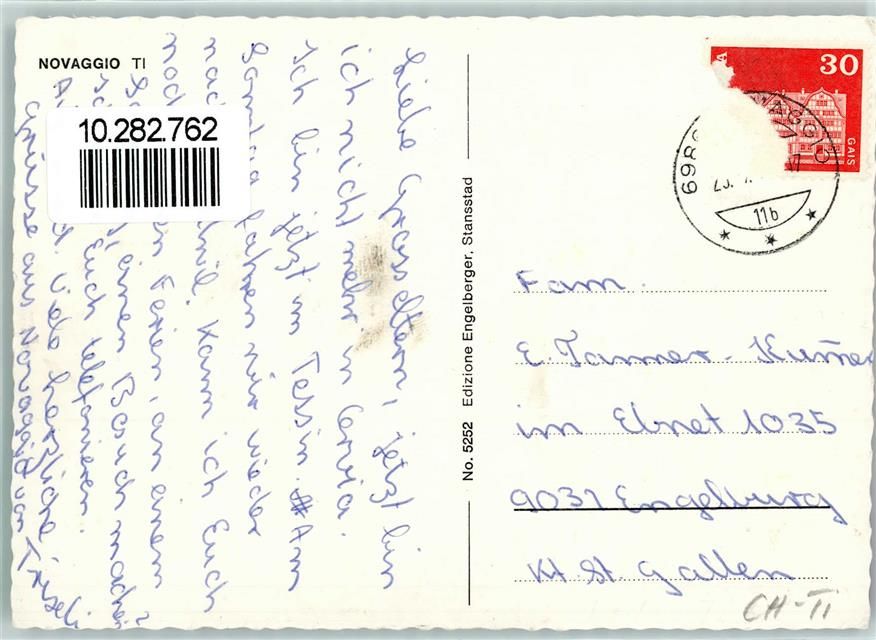 NOVAGGIO TI
10.282.762
Liebe Grosseltern, jetzt bin
ich nicht mehr in Cervia.
Ich bin jetzt im Tessin. Am
Samstag fahren wir wieder
nach Kann ich Euch
noch Ferien, an einem
einen Besuch machen?
Euch telefonieren.
Viele herzliche
Grüsse aus Novaggio von
No. 5252 Edizione Engelberger, Stansstad
30
GAIS
698
AGGIO
11b
Fam.
E. Tanner-
im Ebnet 1035
9032 Engelburg
Kt St. Gallen
CH-TI